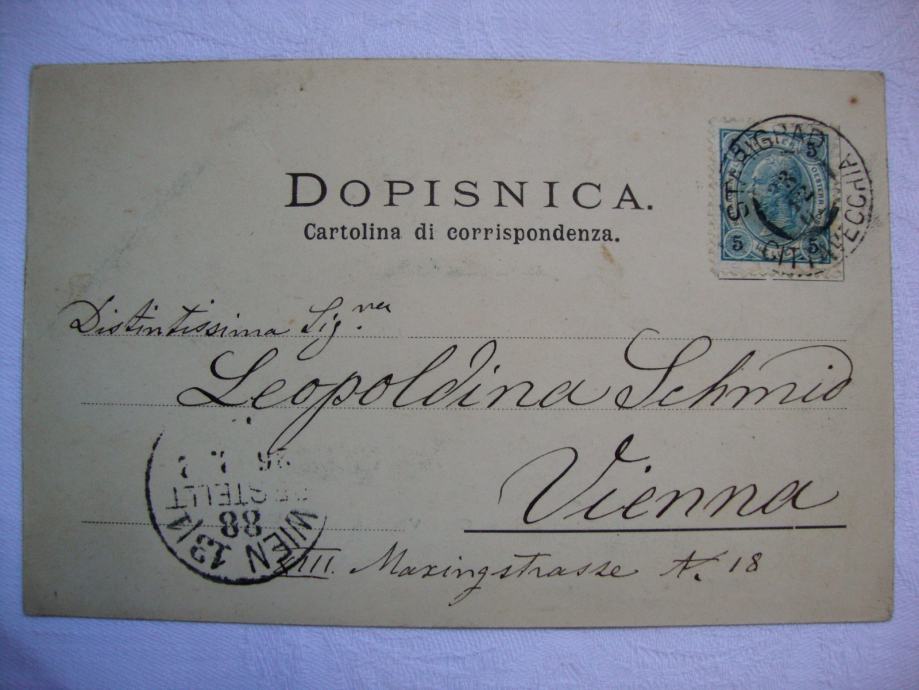 DOPISNICA.
Cartolina di corrispondenza.
STARIGRAD
CITTAVECCHIA
5
5 5
Distintissima Sig.na
Leopoldina Schmid
Vienna
XIII. Maxingstrasse N. 18
WIEN 13/1
88
BESTELLT